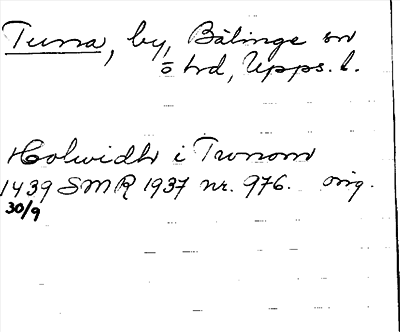 Tuna, by, Bälinge sn
o hd, Upps. l.
Holmvidh i Twnom
1439 SMR 1937 nr. 976. orig.
30/9